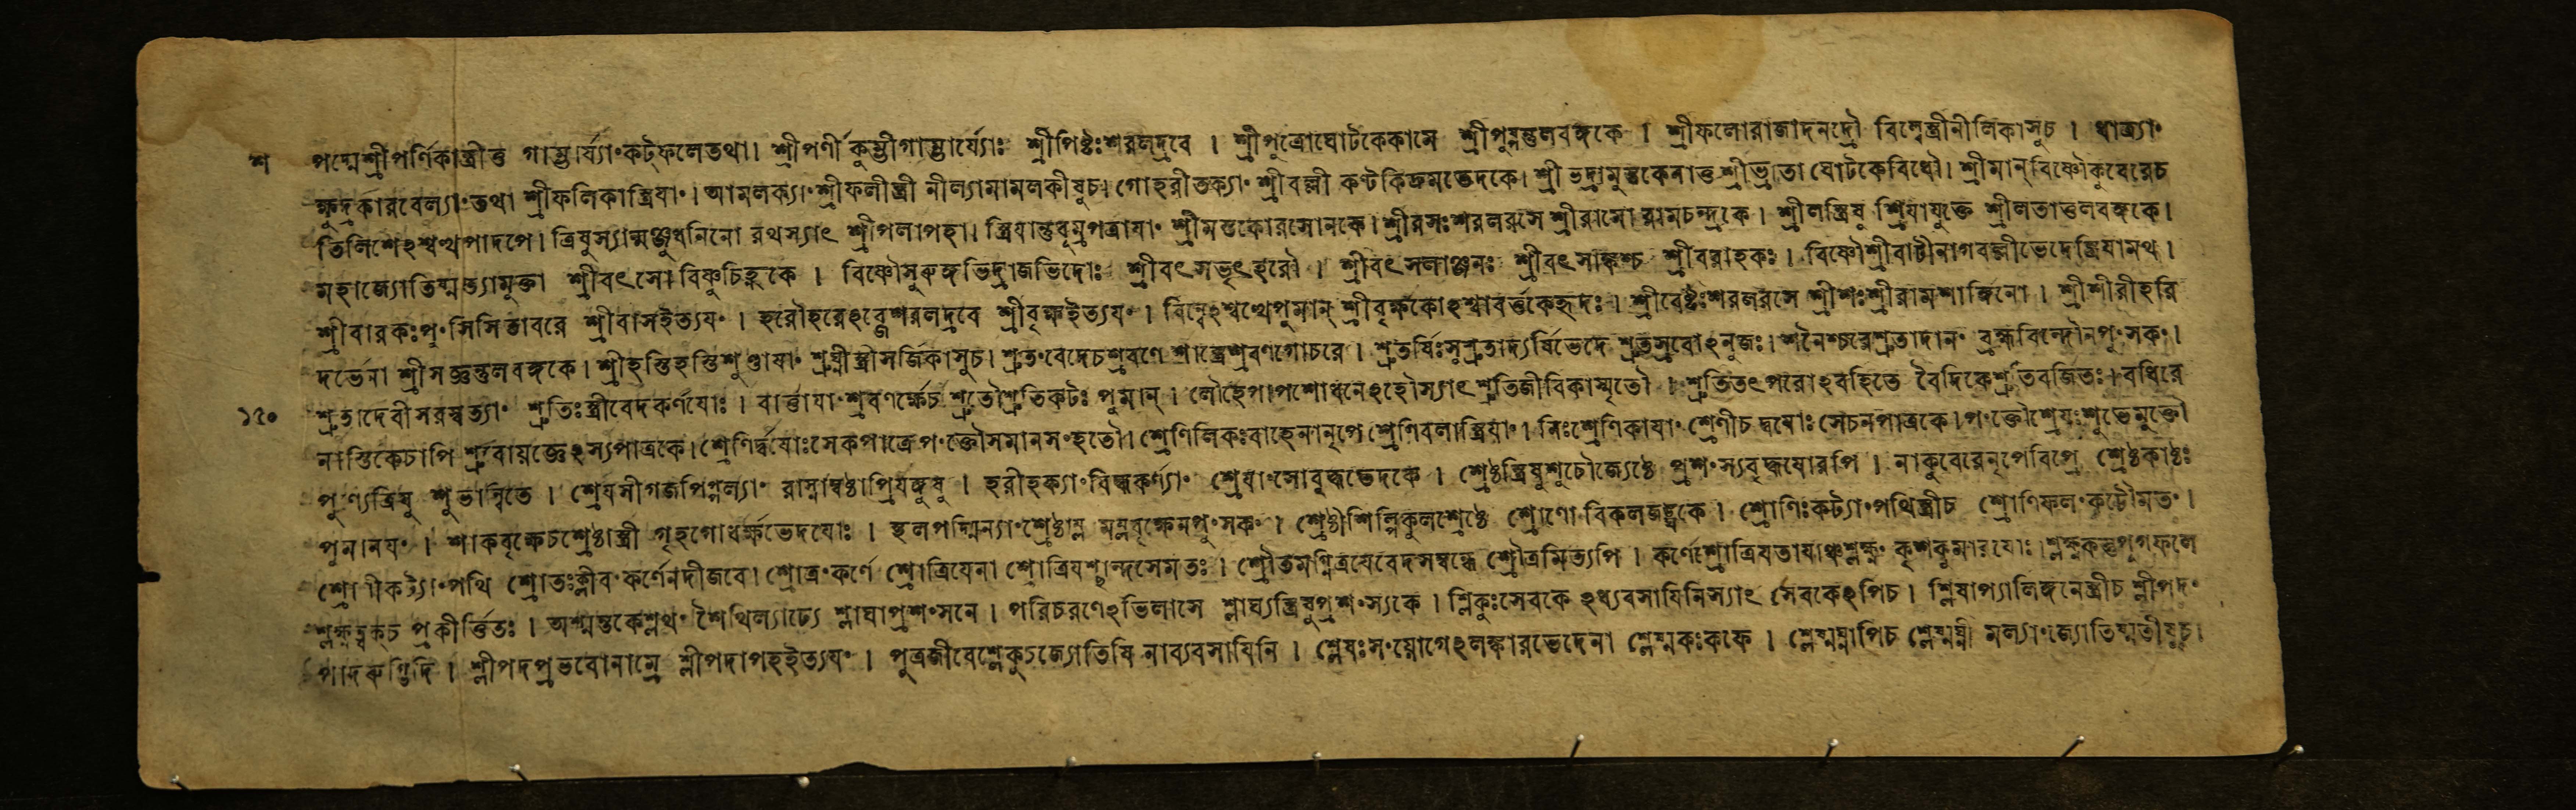 শ পদ্মেশ্রীপর্ণিকাস্ত্রীত্ত গাম্ভার্য্যাং কট্ফলেতথা। শ্রীপর্ণী কুম্ভীগাম্ভার্য্যোঃ শ্রীপিষ্টঃশরলদ্রবে । শ্রীপুত্রোঘোটকেকামে শ্রীপুষ্পন্তুলবঙ্গকে । শ্রীফলোরাজাদনদ্রৌ বিল্বেস্ত্রীনীলিকাসুচ । ধাত্র্যাং
ক্ষুদ্রকারবেল্যাং তথা শ্রীফলিকাস্ত্রিয়াং । আমলক্যাং শ্রীফলীস্ত্রী নীল্যামামলকীষুচ। গোহরীতক্যাং শ্রীবল্লী কণ্টকিদ্রুমভেদকে। শ্রী ভদ্রামুস্তকেনাত্ত শ্রীভ্রাতা ঘোটকেবিধৌ। শ্রীমান্ বিষ্ণৌকুবেরেচ
তিলিশেঽশ্বত্থপাদপে। ত্রিষুস্যান্মঞ্জুধনিনো রথস্যাৎ শ্রীপলাপহা। স্ত্রিয়ান্তুবৃম্রপত্রায়াং শ্রীমস্তকোরসোনকে। শ্রীরসঃশরলরসে শ্রীরামো রামচন্দ্রকে । শ্রীলস্ত্রিষু শ্রিয়াযুক্তে শ্রীলতাত্তলবঙ্গকে।
মহাজ্যোতিষ্মত্যামুক্তা শ্রীবৎসো বিষ্ণুচিহ্নকে । বিষ্ণৌসুরুঙ্গভিদ্রাজভিদোঃ শ্রীবৎসভৃৎহরৌ । শ্রীবৎসলাঞ্ছনঃ শ্রীবৎসাঙ্কশ্চ শ্রীবরাহকঃ । বিষ্ণৌশ্রীবাটীনাগবল্লীভেদেস্ত্রিয়ামথ ।
শ্রীবারকঃপুংসিসিতাবরে শ্রীবাসইত্যয়ং । হরৌহরেঽব্জেশরলদ্রবে শ্রীবৃক্ষইত্যয়ং । বিল্বেঽশ্বত্থেপুমান্ শ্রীবৃক্ষকোঽশ্বাবর্ত্তকেহৃদঃ । শ্রীবেষ্টঃশরলরসে শ্রীশঃশ্রীরামশার্ঙ্গিনো । শ্রীশীরীহরি
দর্ভেনা শ্রীসজ্ঞন্তুলবঙ্গকে । শ্রীহস্তিহস্তিশুণ্ডায়াং শ্রুঘ্নীস্ত্রীসর্জিকাসুচ। শ্রুতং বেদেচশ্রবণে শাস্ত্রেশ্রবণগোচরে । শ্রুতর্ষিঃসুশ্রুতাদ্যর্ষিভেদে শ্রুতস্রবোঽনুজঃ। শনৈশ্চরেশ্রুতাদানং ব্রহ্মবিন্দৌনপুংসকং।
১৫০ শ্রুতাদেবীসরস্বত্যাং শ্রুতিঃস্ত্রীবেদকর্ণয়োঃ । বার্ত্তায়াং শ্রবণর্ক্ষেচ শ্রুতৌশ্রুতিকটঃ পুমান্ । লৌহেপাপশোধনেঽহৌস্যাৎ শ্রুতিজীবিকাস্মৃতৌ । শ্রুতিতৎপরোঽবহিতে বৈদিকেশ্রুতিবর্জিতঃ। বধিরে
নাস্তিকেচাপি শ্রুবায়জ্ঞেঽস্যপাত্রকে। শ্রেণির্দ্বয়োঃসেকপাত্রেপংক্তৌসমানসংহতৌ। শ্রেণিলিকঃবাহেনানৃপে শ্রেণিবলাস্ত্রিয়াং । নিঃশ্রেণিকায়াং শ্রেণীচ দ্বয়োঃ সেচনপাত্রকে। পংক্তৌশ্রেয়ঃশুভেমুক্তৌ
পুণ্যত্রিষু শুভান্বিতে । শ্রেয়সীগজপিপ্পল্যাং রাস্নাম্বষ্ঠাপ্রিয়ঙ্গুষু । হরীতক্যাং বিদ্ধকর্ণ্যাং শ্রেয়াংসোবুদ্ধভেদকে । শ্রেষ্ঠস্ত্রিষুশুচৌজ্যেষ্ঠে প্রশংস্যবৃদ্ধয়োরপি । নাকুবেরেনৃপেবিপ্রে শ্রেষ্ঠকাষ্ঠঃ
পুমানয়ং । শাকবৃক্ষেচশ্রেষ্ঠাস্ত্রী গৃহগোধর্ক্ষভেদয়োঃ । স্থলপদ্মিন্যাং শ্রেষ্ঠাম্ল মম্লবৃক্ষেনপুংসকং । শ্রেষ্ঠীশিল্পিকুলশ্রেষ্ঠে শ্রোণো বিকলজঙ্ঘকে । শ্রোণিঃকট্যাং পথিস্ত্রীচ শ্রোণিফলং কটৌমতং ।
শ্রোণীকট্যাং পথি শ্রোতঃক্লীবং কর্ণেনদীজবে। শ্রোত্রং কর্ণে শ্রোত্রিয়েনা শ্রোত্রিয়শ্ছান্দসেমতঃ । শ্রৌতমগ্নিত্রয়েবেদসম্বন্ধে শ্রৌত্রমিত্যপি । কর্ণেশ্রোত্রিয়তায়াঞ্চশ্লক্ষ্ণং কৃশকুমারয়োঃ। শ্লক্ষ্ণকন্তুপূগফলে
শ্লক্ষ্ণত্বক্চ প্রকীর্ত্তিতঃ । অশ্মন্তকেশ্লথং শৈথিল্যাঢ্যে শ্লাঘাপ্রশংসনে । পরিচরণেঽভিলাসে শ্লাঘ্যস্ত্রিষুপ্রশংস্যকে । শ্লিকুঃসেবকে ঽধ্যবসায়িনিস্যাৎ সেবকেঽপিচ । শ্লিষাপ্যালিঙ্গনেস্ত্রীচ শ্লীপদং
পাদরুগ্ভিদি । শ্লীপদপ্রভবোনাম্রে শ্লীপদাপহইত্যয়ং । পুত্রজীবেশ্লেকুঽজ্যোতিষি নাব্যবসায়িনি । শ্লেষঃসংয়োগেঽলঙ্কারভেদেনা শ্লেষ্মকঃকফে । শ্লেষ্মঘ্নাপিচ শ্লেষ্মঘ্নী মল্ল্যাংজ্যোতিষ্মতীষুচ।